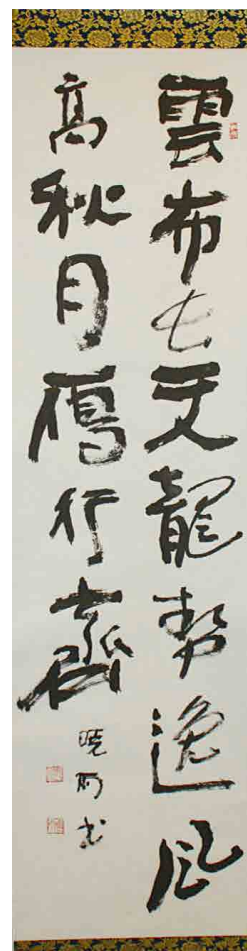 雲布長天龍勢逸風
高秋月鴈行齊
暁 書